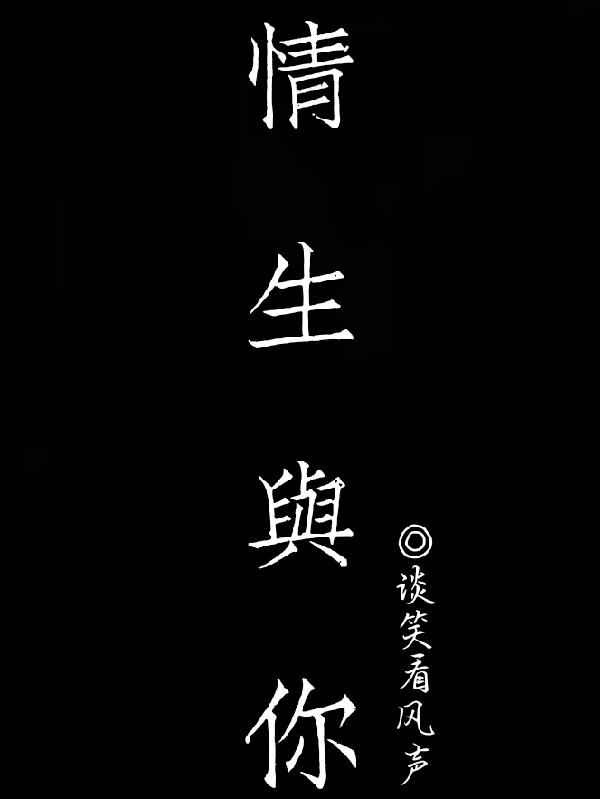 情生與你
◎谈笑看风声